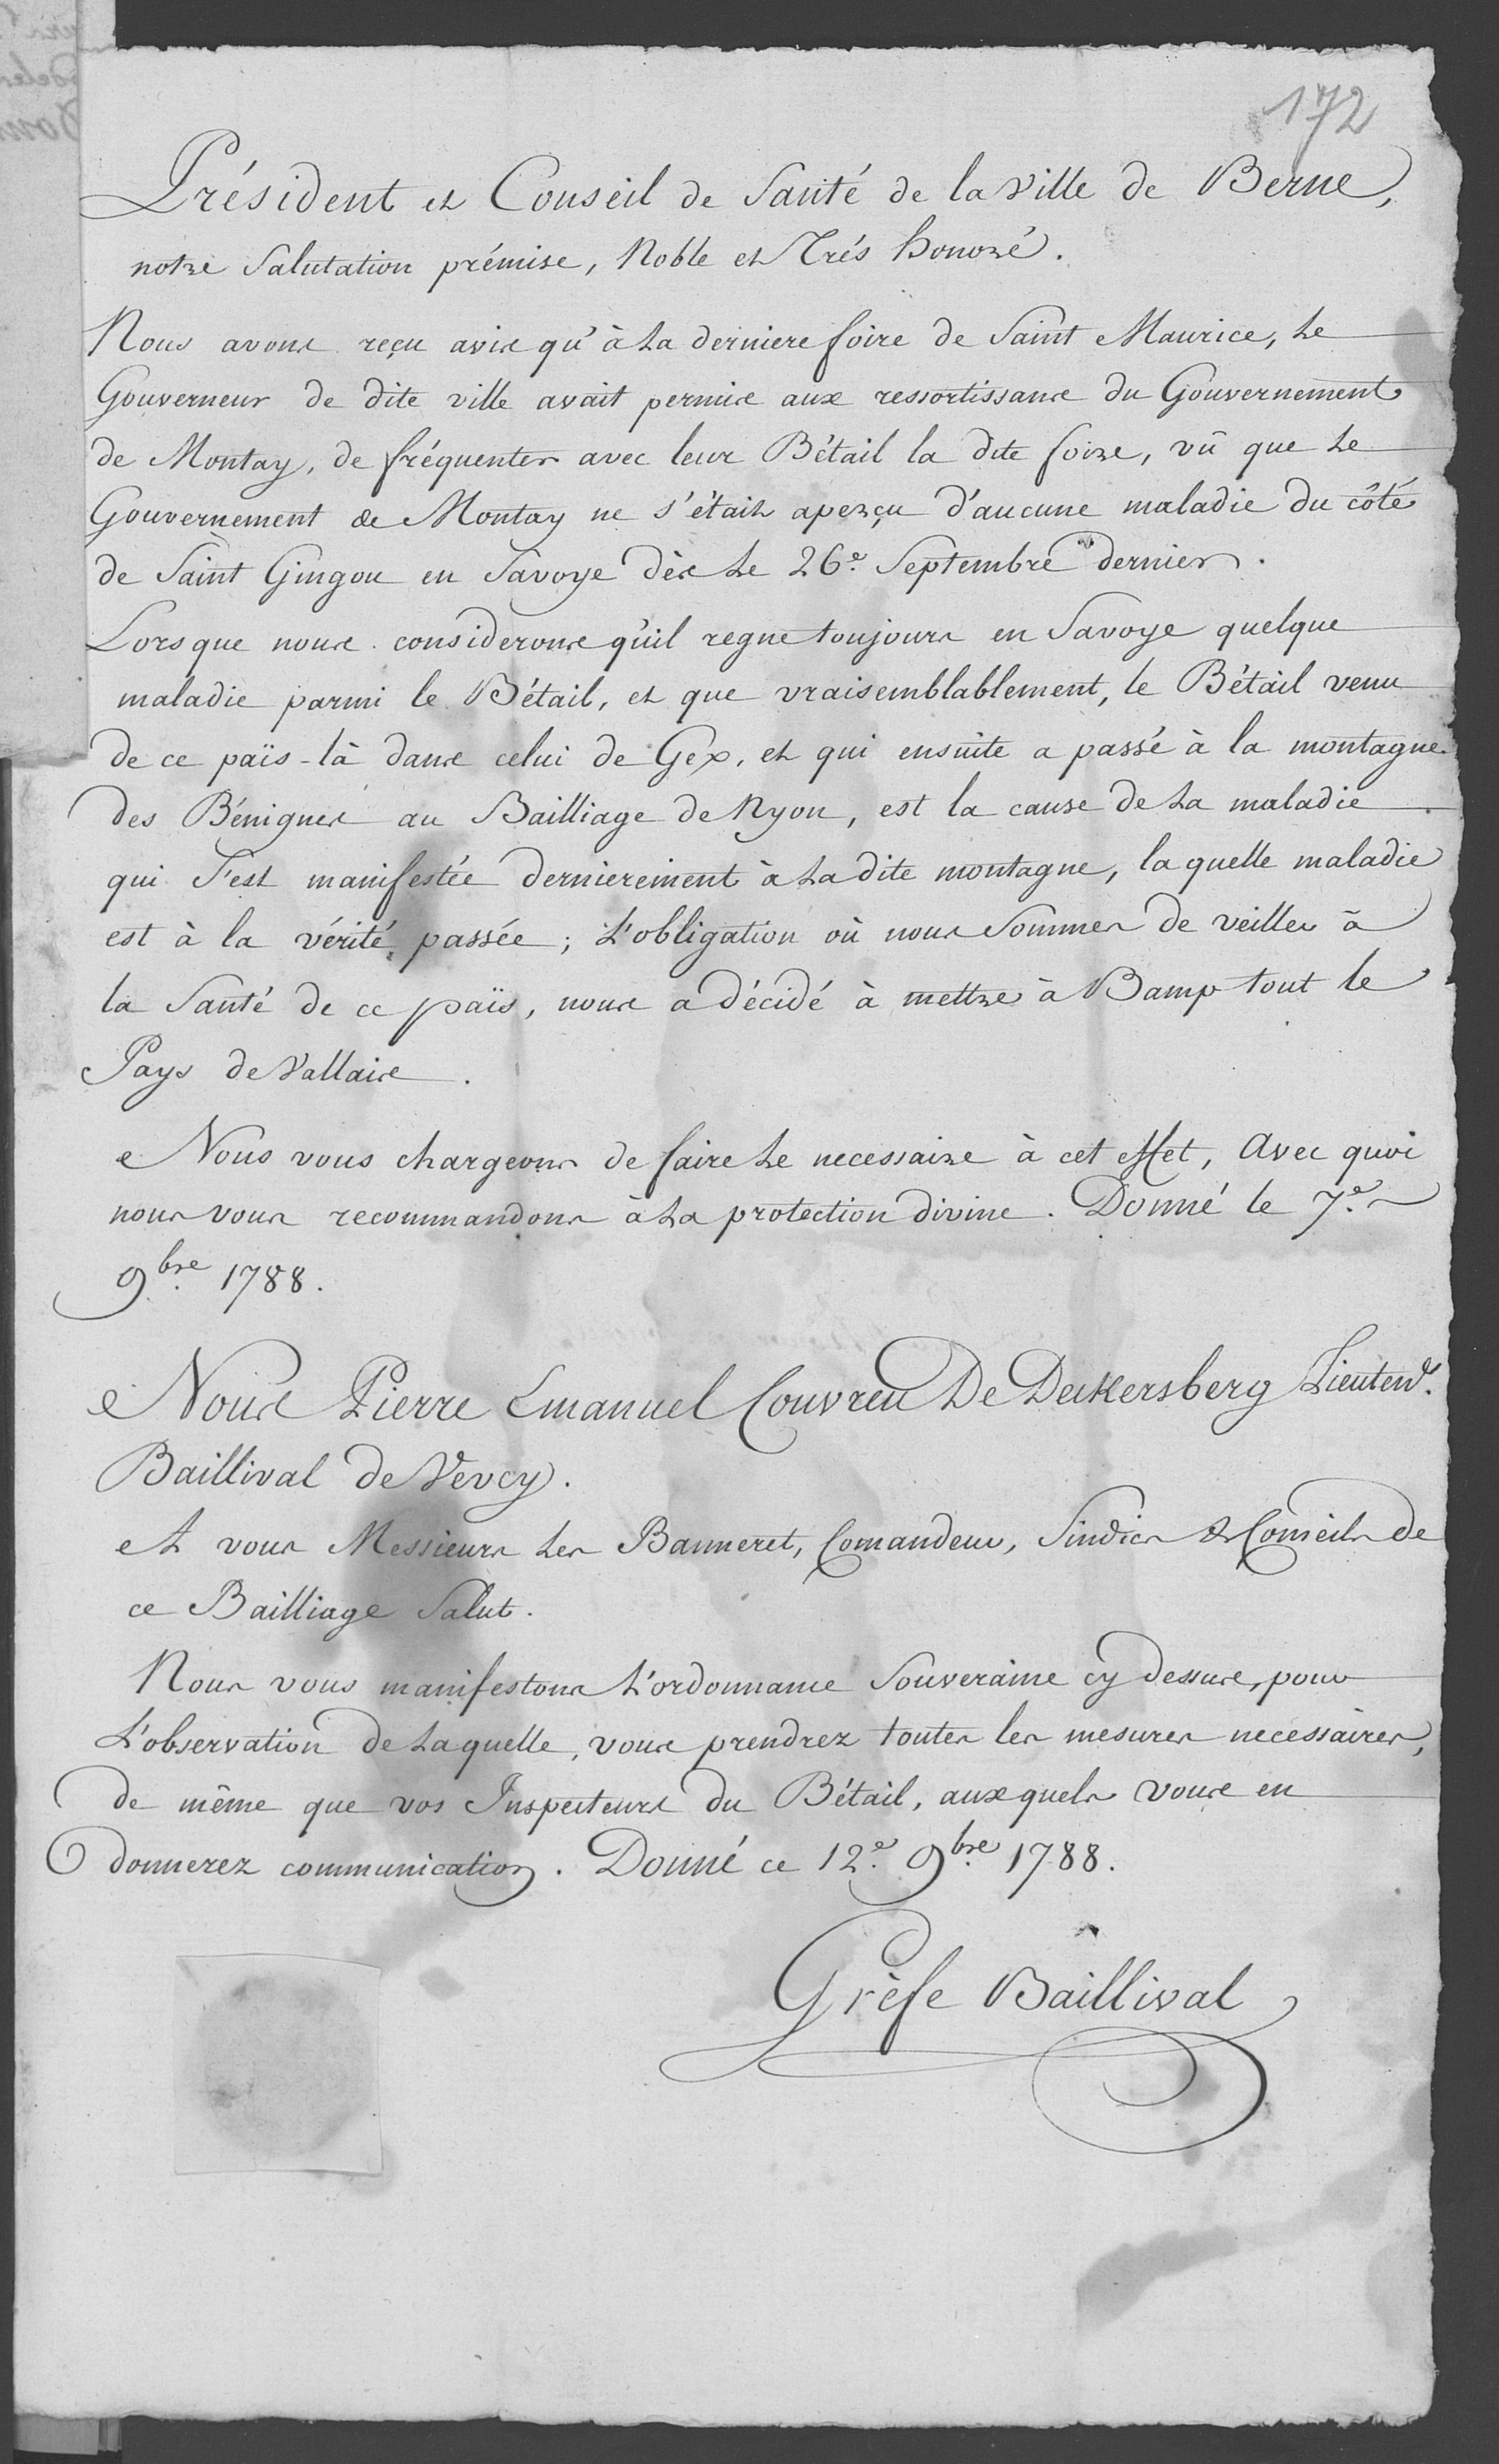 172
Président et Conseil de Santé de la Ville de Berne,
notre Salutation prémise, Noble et Trés honoré.
Nous avons reçu avis qu'à la derniere foire de Saint Maurice, le
Gouverneur de dite ville avait permis aux ressortissans du Gouvernement
de Montay, de fréquenter avec leur Bétail la dite foire, vû que le
Gouvernement de Montay ne s'était aperçu d'aucune maladie du côté
de Saint Gingou en Savoye dès le 26e. Septembre dernier.
Lorsque nous considerons qu'il regne toujours en Savoye quelque
maladie parmi le Bétail, et que vraisemblablement, le Bétail venu
de ce païs-là dans celui de Gex, et qui ensuite a passé à la montagne
des Bénignes au Bailliage de Nyon, est la cause de la maladie
qui s'est manifestée dernierement à la dite montagne, la quelle maladie
est à la vérité passée; L'obligation où nous Sommes de veiller à
la Santé de ce païs, nous a décidé à mettre à Bamp tout le
Pays de Vallais.
Nous vous chargeons de faire le necessaire à cet effet, Avec quoi
nous vous recommandons à la protection divine. Donné le 7e.
9bre. 1788.
Nous Pierre Emanuel Couvreu De Deckersberg Lieutent.
Baillival de Vevey.
A vous Messieurs les Banneret, Comandeur, Sindics & Conseils de
ce Bailliage Salut.
Nous vous manifestons L'ordonnance Souveraine cy dessus, pour
L'observation de laquelle, vous prendrez toutes les mesures necessaires,
de même que vos Inspecteurs du Bétail, auxquels vous en
donnerez communication. Donné ce 12e. 9bre. 1788.
Gréfe Baillival